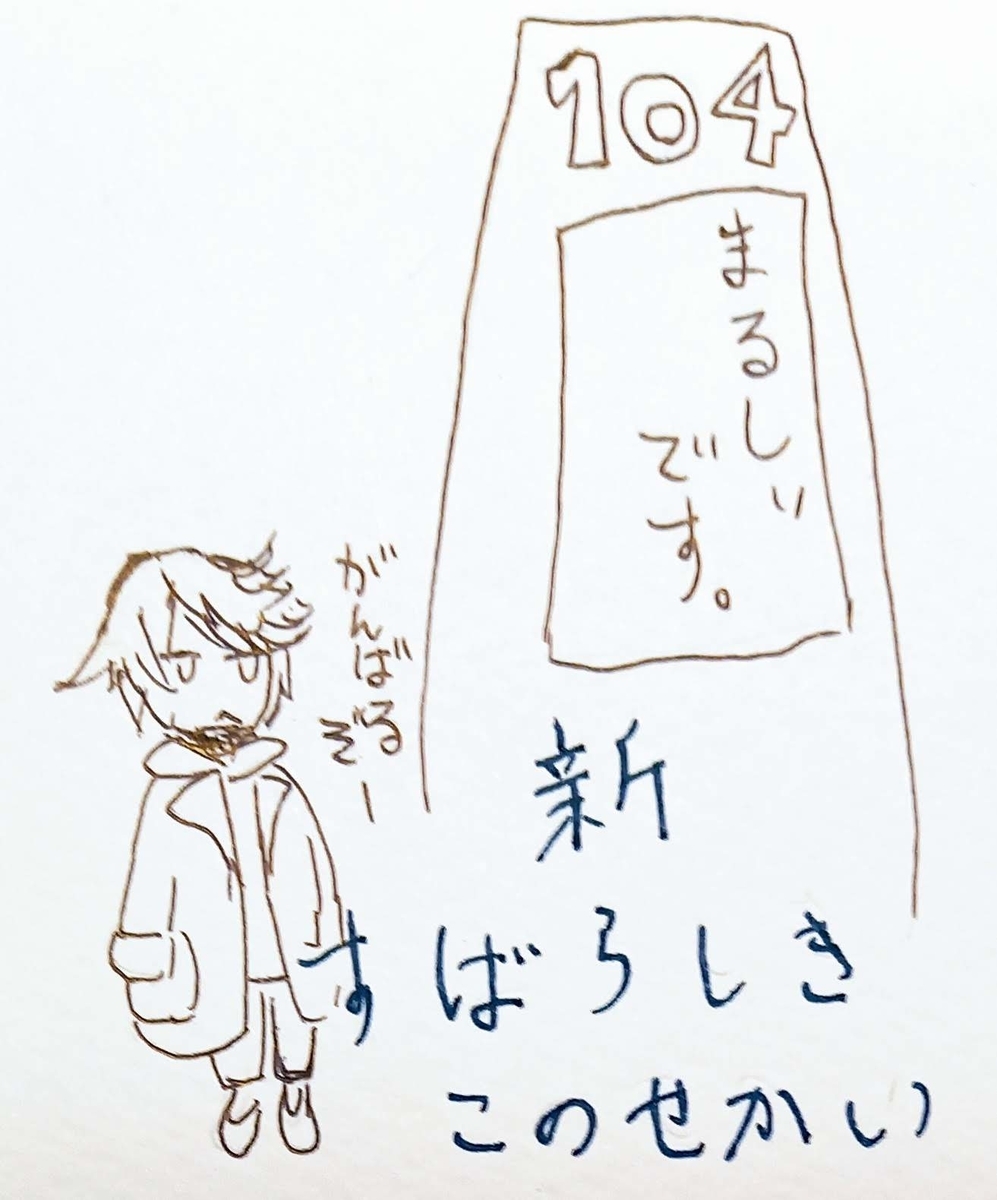 104
まるしぃ
です。
がんばる
ぞー
新
すばらしき
このせかい